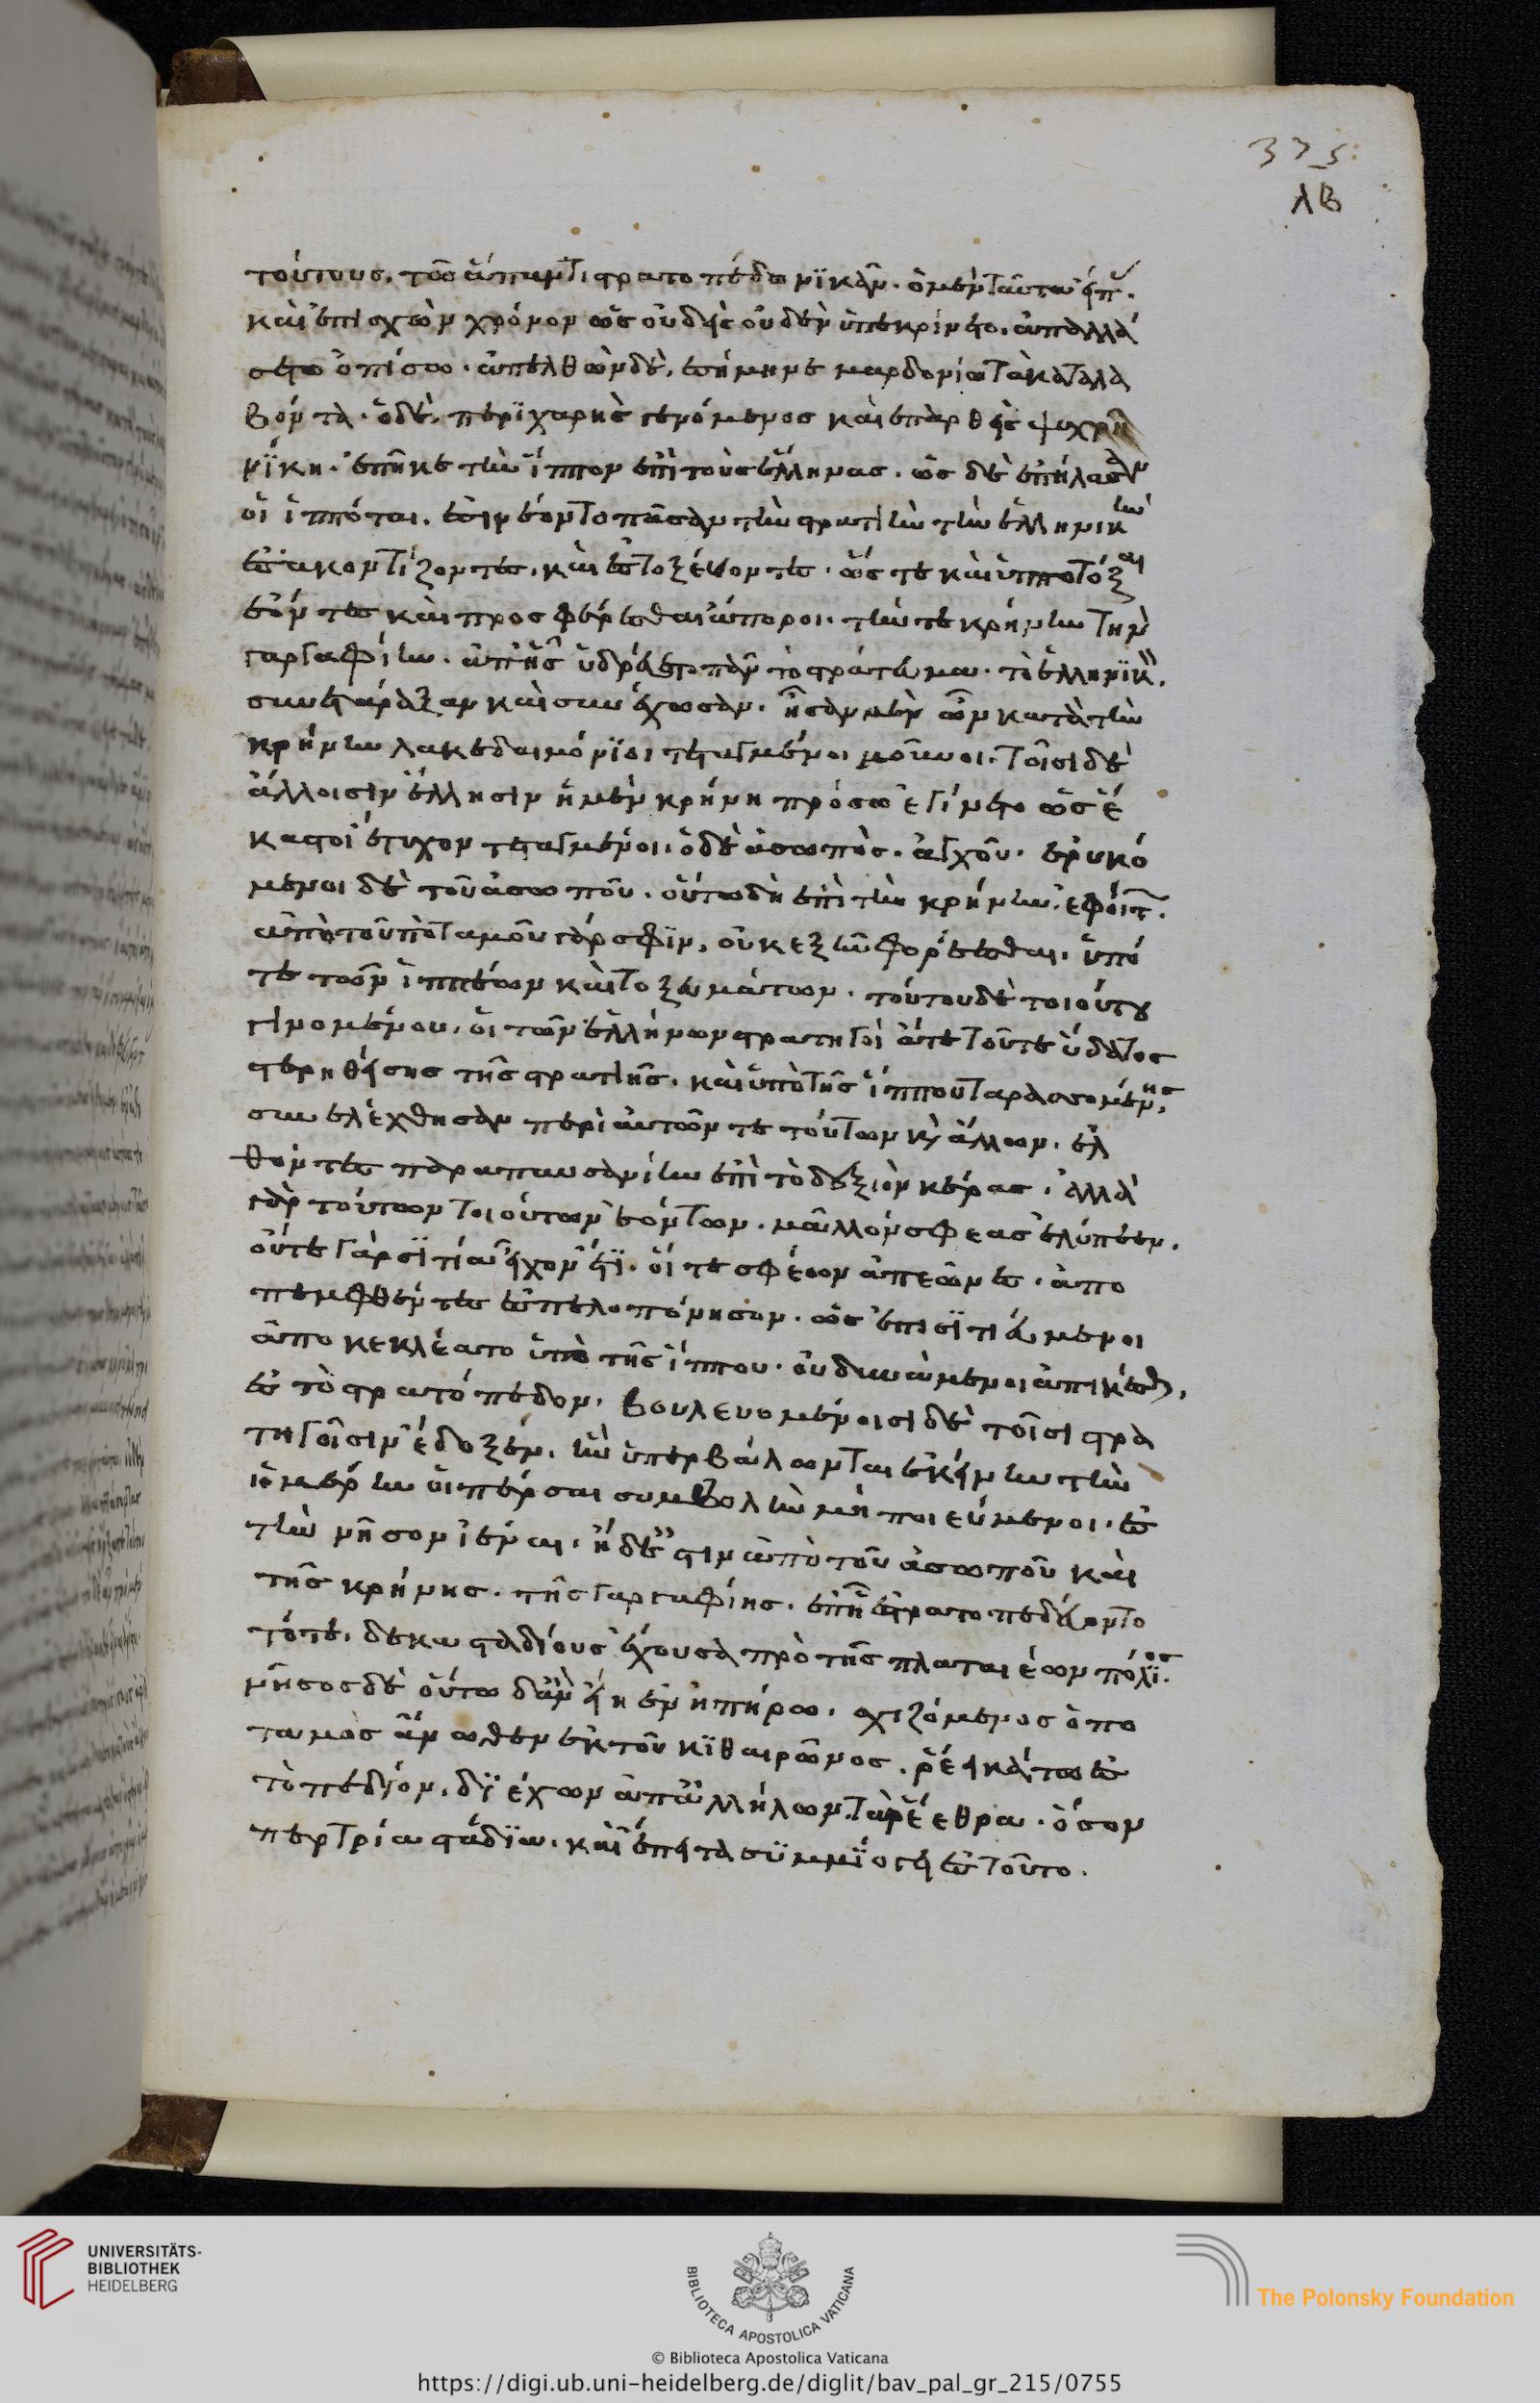 375:
λβ
τούτους. τῶ ἅπαντι στρατοπέδω νϊκᾶν. ὁ μὲν ταῦτα εἴπ.
καὶ ἐπισχὼν χρόνον ὡς οὐδεὶς οὐδὲν ὑπεκρίνετο. ἀπαλλά
σετο ὀπίσω. ἀπελθὼν δὲ, ἐσήμηνε μαρδονίω τὰ καταλα
βόντα. ὁ δὲ, περϊχαρὴς γενόμενος καὶ ἐπαρθεὶς ψυχρῆ
νίκη. ἐπῆκε τὴν ἵππον ἐπὶ τοὺς ἕλληνας. ὡς δὲ ἐπήλασαν
οἱ ἱππόται. ἐσινέοντο πᾶσαν τὴν στρατιὴν τὴν ἑλληνικὴν
ἐσακοντίζοντες. καὶ ἐστοξέυοντες. ὥς τε καὶ ἱπποτόξαι
ἐόντες καὶ προσφέρεσθαι ἄποροι. τήν τε κρήνην τὴν
γαργαφίην. ἀπ' ἧς ὑδρέυετο πᾶν τὸ στράτευμα. τὸ ἑλληνϊκὸν.
συνετάραξαν καὶ συνέχωσαν. ἦσαν μὲν ὦν κατὰ τὴν
κρήνην λακεδαιμόνϊοι τεταγμένοι μοῦνοι. τοῖσι δὲ
ἄλλοισιν ἕλλησιν ἡ μὲν κρήνη πρόσω ἐγίνετο ὡς ἕ
καστοι ἔτυχον τεταγμένοι. ὁ δὲ ἀσωπὸς. ἀγχοῦ. ἐρυκό
μενοι δὲ τοῦ ἀσωποῦ. οὕτω δὴ ἐπὶ τὴν κρήνην. ἐφοίτ.
ἀπὸ τοῦ ποταμοῦ γάρ σφϊν, οὐκ ἐξῆν φορέεσθαι. ὑπό
τε τῶν ἱππέων καὶ τοξευμάτων. τούτου δὲ τοιούτου
γινομένου. οἱ τῶν ἑλλήνων στρατηγοὶ ἅτε τοῦ τε ὕδατος
στερηθείσης τῆς στρατιῆς. καὶ ὑπὸ τῆς ἵππου ταρασσομένης.
συνελέχθησαν περὶ αὐτῶν τε τούτων κὶ ἄλλων. ἐλ
θόντες παρα παυσανίην ἐπὶ τὸ δεξιὸν κέρας. ἀλλὰ
γὰρ τούτων τοιούτων ἐόντων. μᾶλλον σφεας ἐλύπεεν.
οὔτε γὰρ σϊτία εἶχον ἔτϊ. οἵ τε σφέων ὀπέωνες. ἀπο
πεμφθέντες ἐς πελοπόνησον. ὡς ἐπισϊτιεύμενοι
ἀποκεκλέατο ὑπὸ τῆς ἵππου. οὐ δυνάμενοι ἀπικέσθαι.
ἐς τὸ στρατόπεδον. βουλευομένοισι δὲ τοῖσι στρα
τηγοῖσιν ἔδοξεν. ἢν ὑπερβάλωνται ἐκείνην τὴν
ἡμέρην οἱ πέρσαι συμβολὴν μὴ ποιεύμενοι. ἐς
τὴν νῆσον ἰέναι. ἡ δὲ ἐστιν ἀπὸ τοῦ ἀσωποῦ καὶ
τῆς κρήνης. τῆς γαργαφίης. ἐπ' ἧ ἐστρατοπεδεύοντο
τότε. δέκα σταδίους ἀπέχουσα πρὸ τῆς πλαταιέων πόλϊος.
νῆσος δὲ οὕτω δ' ἂν εἴη ἐν ἠπείρω. σχιζόμενος ὁ πο
ταμὸς ἄνωθεν ἐκ τοῦ κϊθαιρῶνος. ῥέει κάτω ἐς
τὸ πεδίον. δϊέχων ἀπ' ἀλλήλων τὰ ῥέεθρα. ὅσον
περ τρία στάδϊα. καὶ ἔπειτα συμμϊσγει ἐς τοῦτο.
UNIVERSITÄTS-
BIBLIOTHEK
HEIDELBERG
BIBLIOTECA APOSTOLICA VATICANA
© Biblioteca Apostolica Vaticana
The Polonsky Foundation
https://digi.ub.uni-heidelberg.de/diglit/bav_pal_gr_215/0755